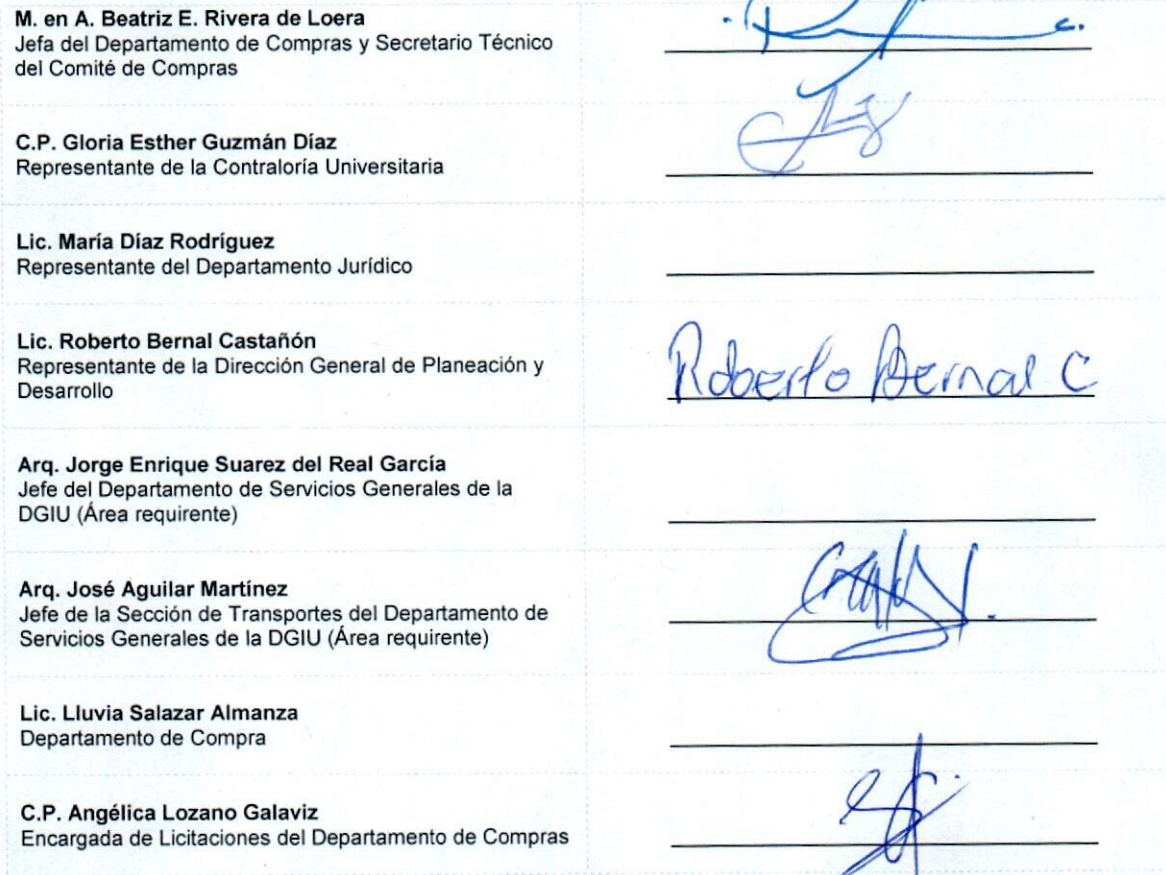 M. en A. Beatriz E. Rivera de Loera
Jefa del Departamento de Compras y Secretario Técnico
del Comité de Compras
C.P. Gloria Esther Guzmán Díaz
Representante de la Contraloría Universitaria
Lic. María Díaz Rodríguez
Representante del Departamento Jurídico
Lic. Roberto Bernal Castañón
Representante de la Dirección General de Planeación y
Desarrollo
Roberto Bernal C
Arq. Jorge Enrique Suarez del Real García
Jefe del Departamento de Servicios Generales de la
DGIU (Área requirente)
Arq. José Aguilar Martínez
Jefe de la Sección de Transportes del Departamento de
Servicios Generales de la DGIU (Área requirente)
Lic. Lluvia Salazar Almanza
Departamento de Compra
C.P. Angélica Lozano Galaviz
Encargada de Licitaciones del Departamento de Compras